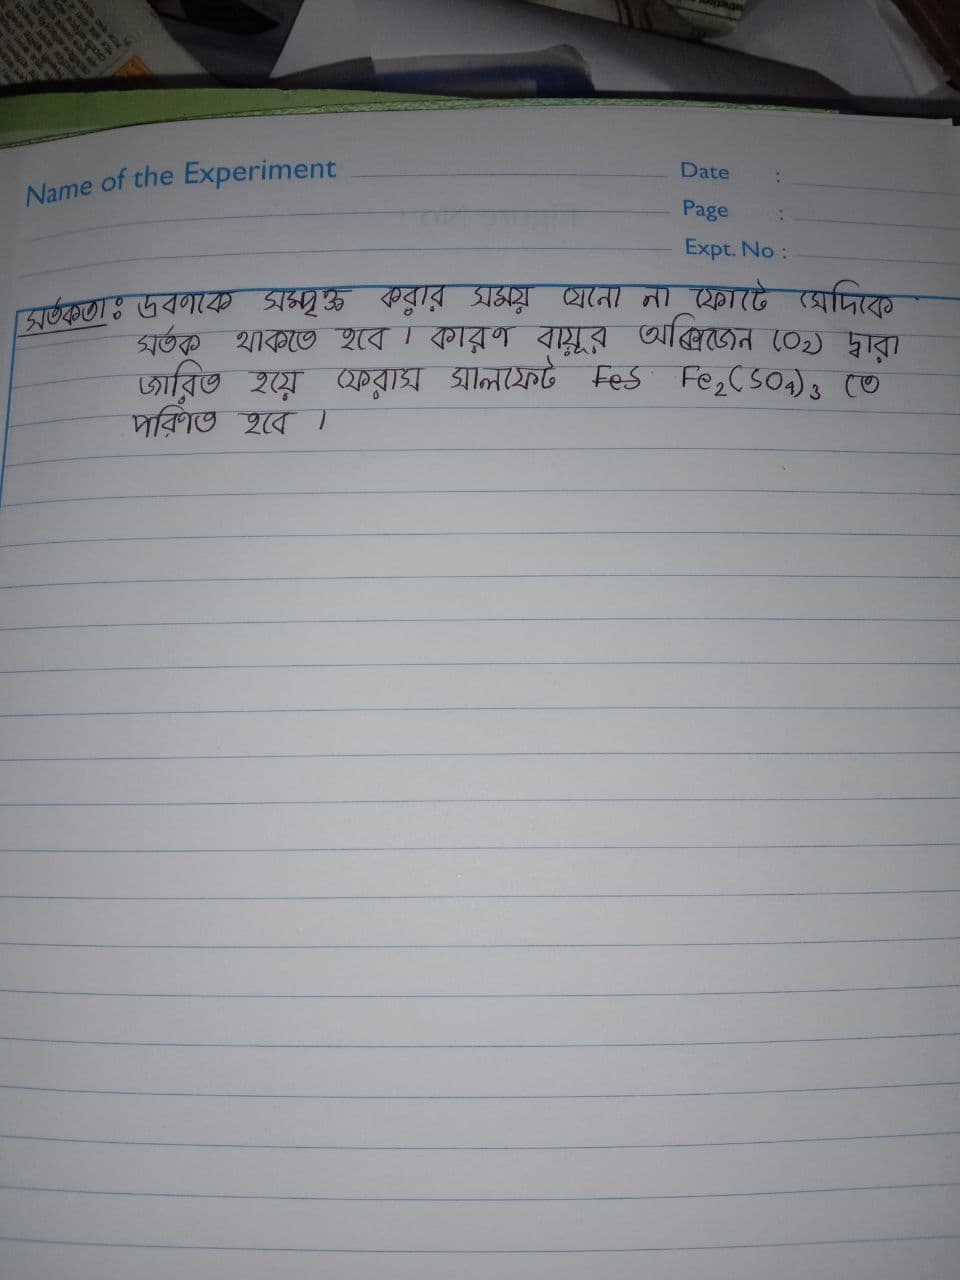 Name of the Experiment
Date :
Page :
Expt. No :
সর্তকতাঃ দ্রবণকে সম্পৃক্ত করার সময় যেনো না ফোটে সেদিকে
সর্তক থাকতে হবে। কারণ বায়ুর অক্সিজেন (O2) দ্বারা
জারিত হয়ে ফেরাস সালফেট FeS Fe2(SO4)3 তে
পরিণত হবে।